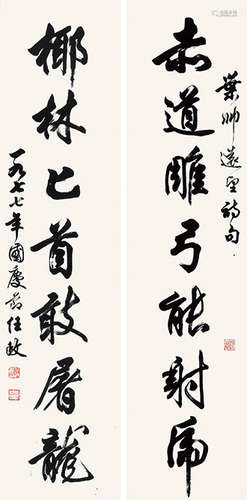 葉帥遠望詩句
赤道雕弓能射虎
椰林匕首敢屠龍
一九七七年國慶節任政